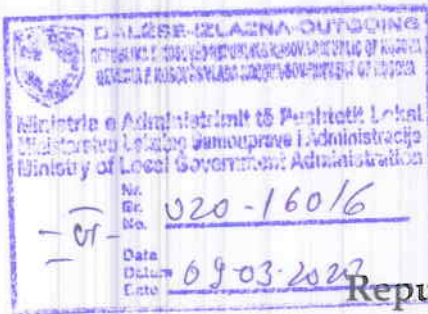 DALËSE-IZLAZNA-OUTGOING
Ministria e Administrimit të Pushtetit Lokal
Ministarstvo Lokalne Samouprave i Administracije
Ministry of Local Government Administration
Nr.
Br.
No.
020-160/6
Data
Datum
Date
09-03-2022
Repu